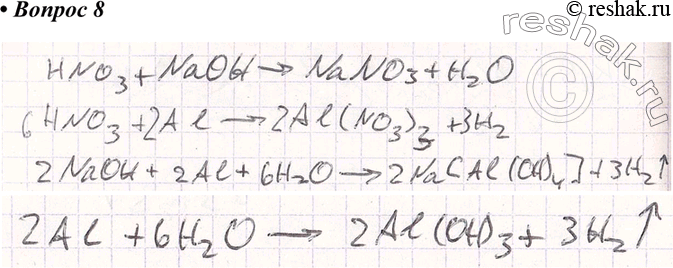 © reshak.ru
• Вопрос 8
HNO₃ + NaOH → NaNO₃ + H₂O
6HNO₃ + 2Al → 2Al(NO₃)₃ + 3H₂
2NaOH + 2Al + 6H₂O → 2Na[Al(OH)₄] + 3H₂↑
2Al + 6H₂O → 2Al(OH)₃ + 3H₂↑